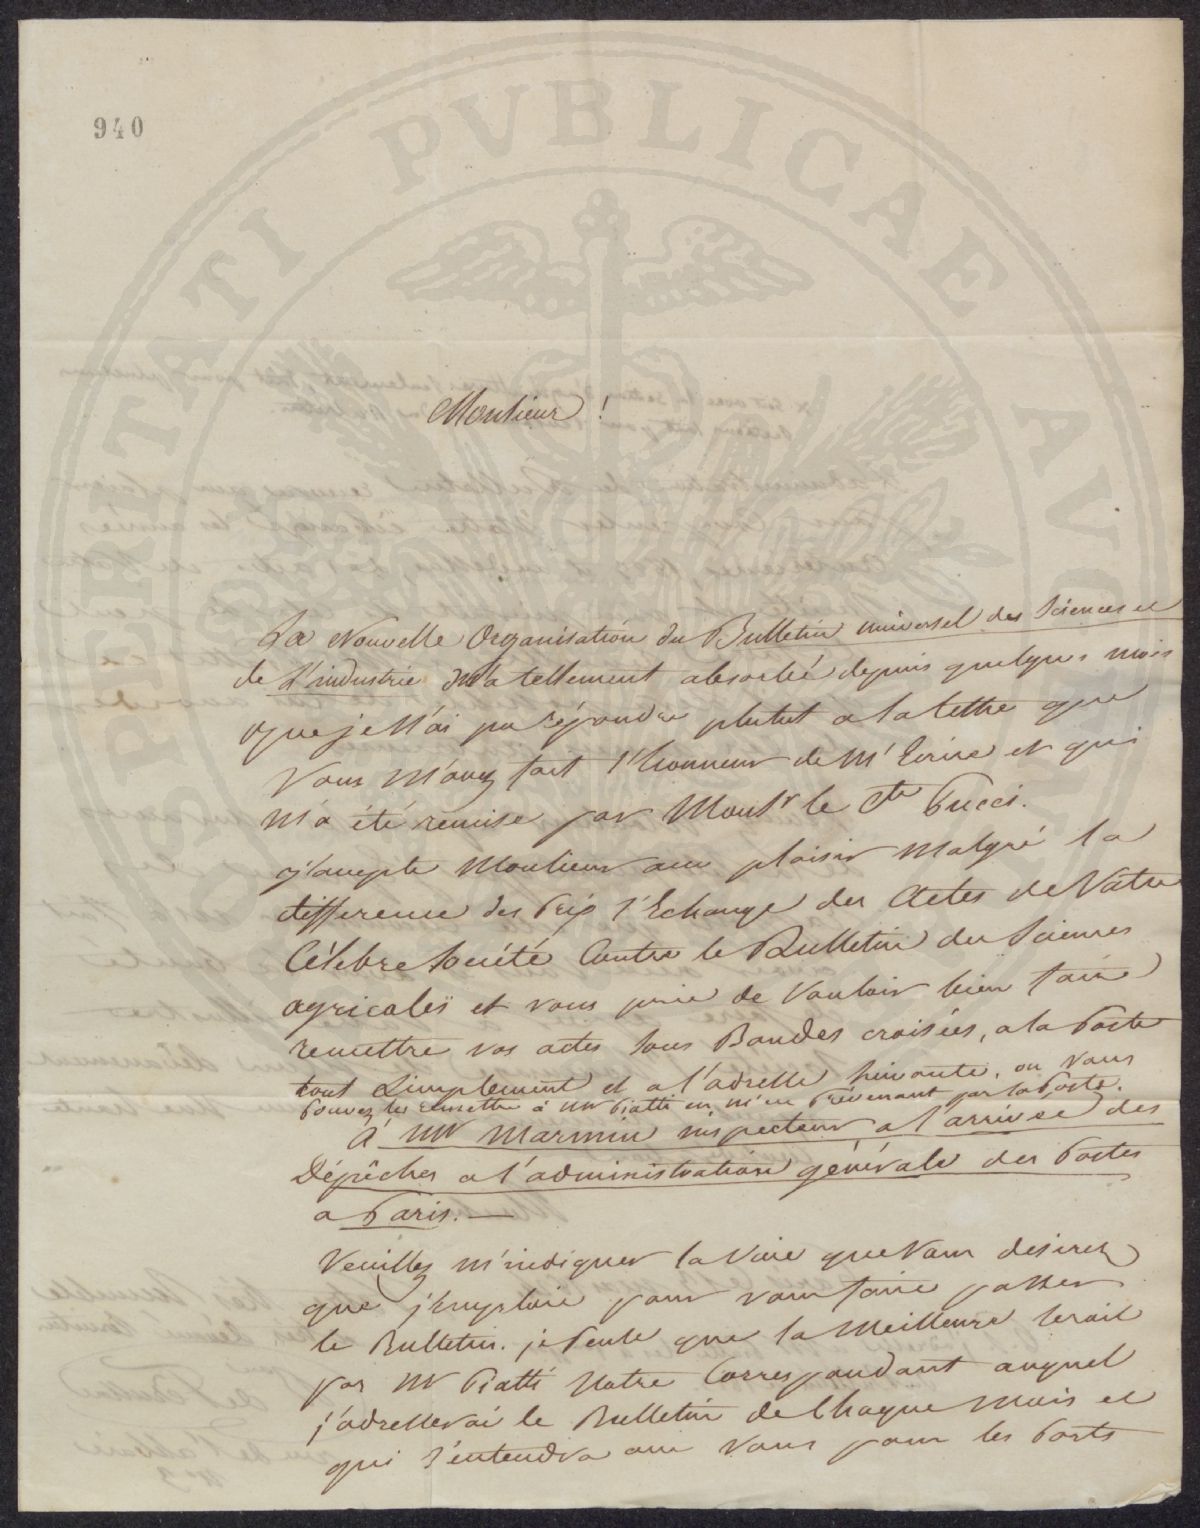 940
PROSPERITATI PVBLICAE AVGENDAE
Monsieur !
La Nouvelle Organisation du Bulletin universel des Sciences et
de l'industrie m'a tellement absorbé depuis quelques mois
que je n'ai pu répondre plutut a la lettre que
Vous m'avez fait l'honneur de m'Ecrire et qui
m'a été remise par Monsr le Cte Pucci.
j'accepte Monsieur avec plaisir malgré la
difference des Prix l'Echange des Actes de Votre
Célebre Société Contre le Bulletin des Sciences
agricoles et vous prie de Vouloir bien faire
remettre vos actes sous Bandes croisées, a la Poste
tout Simplement et a l'adresse suivante, ou vous
Pouvez les remettre à Mr Piatti en m'en Prévenant par la Poste.
A Mr Marmin inspecteur a l'arrivée des
Dépêches a l'administration générale des Postes
a Paris. —
Veuillez m'indiquer la Voie que Vous desirez
que j'Emploie pour vous faire passer
le Bulletin. je Pense que la Meilleure serait
par Mr Piatti Notre Correspondant auquel
j'adresserai le Bulletin de Chaque Mois et
qui s'entendra avec Vous pour les Ports